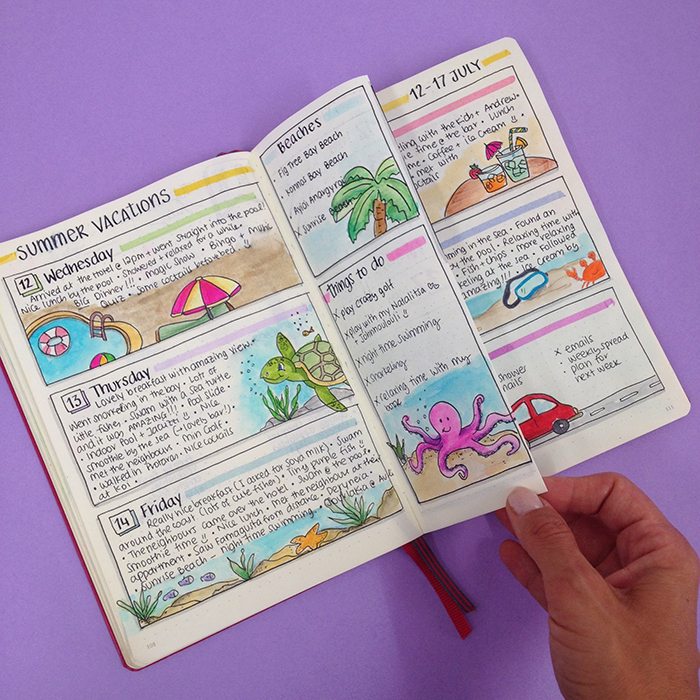 SUMMER VACATIONS
12 Wednesday
Arrived at the hotel @ 12pm + went straight into the pool!
Nice lunch by the pool • Showered + relaxed for a while •
BIG dinner !!! • Magic show • Bingo + music
Quiz • some cocktails before bed
13 Thursday
Lovely breakfast with amazing view •
Went snorkeling in the bay • Lots of
little fishes • Swam with a sea turtle
and it was AMAZING!!! • Pool slide •
Indoor Pool + Jacuzzi • Nice
smoothie by the sea (+ lovely bar!) •
met the neighbours • mini Golf •
• Walked in Protaras • Nice cocktails
at
14 Friday
Really nice breakfast (I asked for soya milk) • Swam
around the coast (lots of cute fishes) • Tiny purple fish
• The neighbours came over the hotel • Swam @ the pool •
smoothie time • Nice lunch • met the neighbour at they
appartment • Saw Famagusta from distance • Deryneia •
• Sunrise Beach • Night time swimming •
Beaches
• Fig Tree Bay Beach
• Konnos Bay Beach
• Ayioi Anargyroi
x Sunrise Beach
things to do
x play crazy golf
x play with my Natalitsa as
x night time swimming
x Snorkeling
x relaxing time with my
12-17 JULY
with the Fish + Andrew •
time @ the bar • Lunch
time • Coffee + ice cream
met with
cocktails
in the sea • Found an
by the pool • Relaxing time with
• Fish + Chips • more relaxing
at the sea • Followed
amazing!!! • Ice cream by
shower
nails
x emails
• weekly spread
• plan for
next week